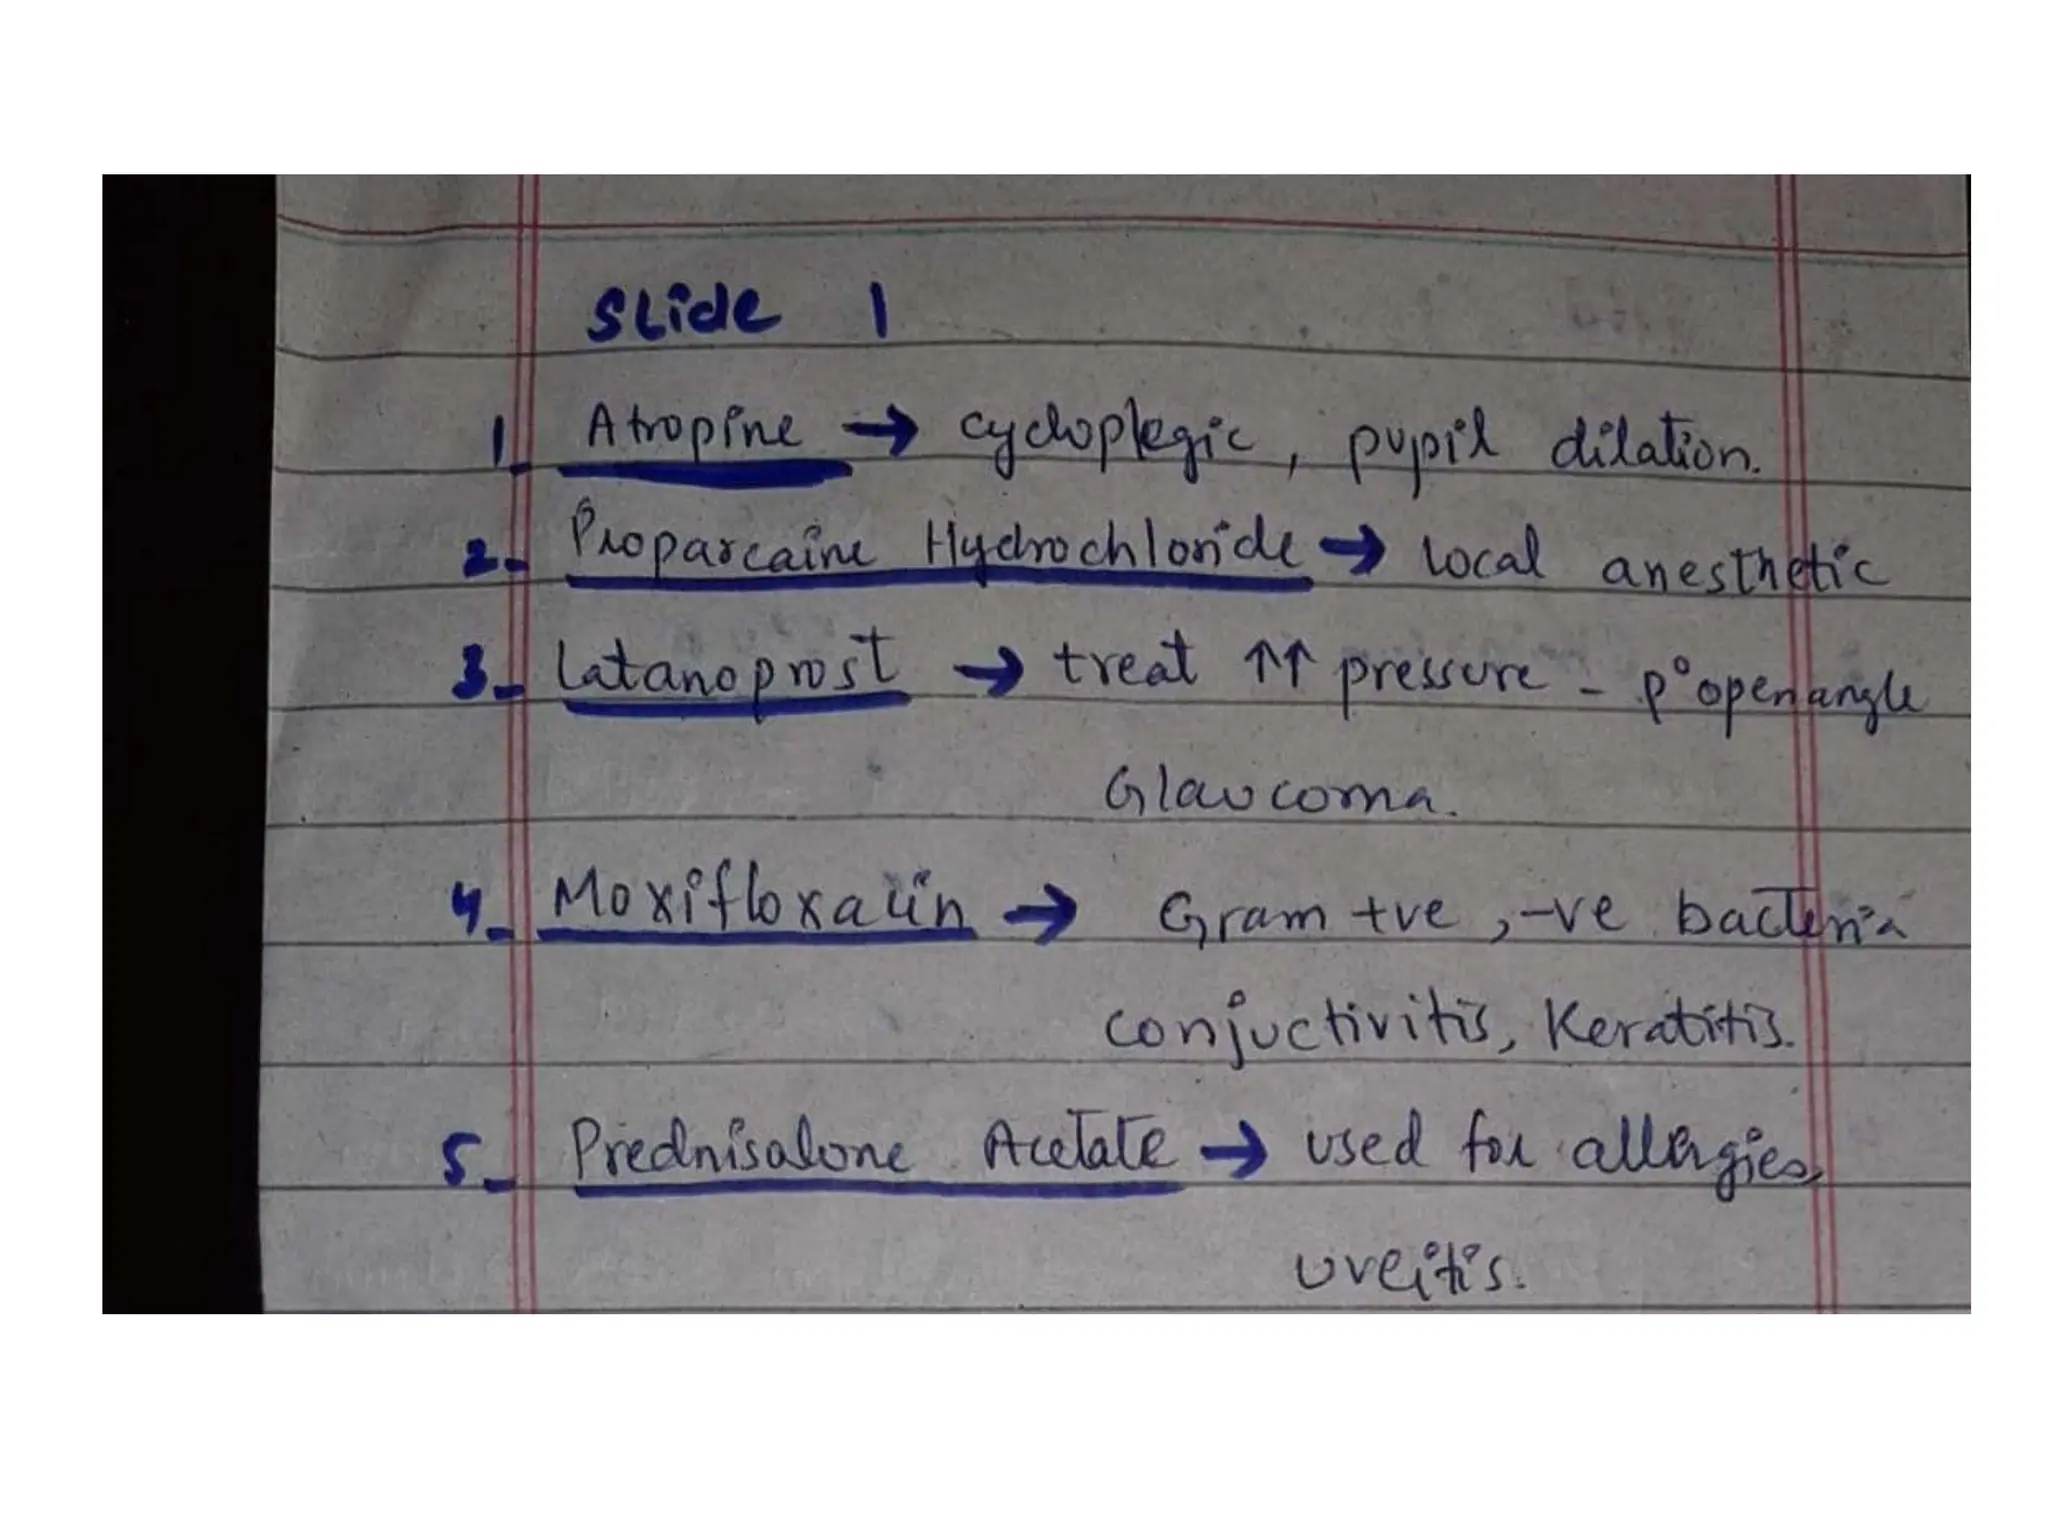 Slide 1
1_ Atropine → cycloplegic, pupil dilation.
2- Proparcaine Hydrochloride → local anesthetic
3- Latanoprost → treat ↑↑ pressure - p° open angle
Glaucoma.
4- Moxifloxacin → Gram +ve, -ve bacteria
conjuctivitis, Keratitis.
5- Prednisalone Acetate → used for allergies,
uveitis.